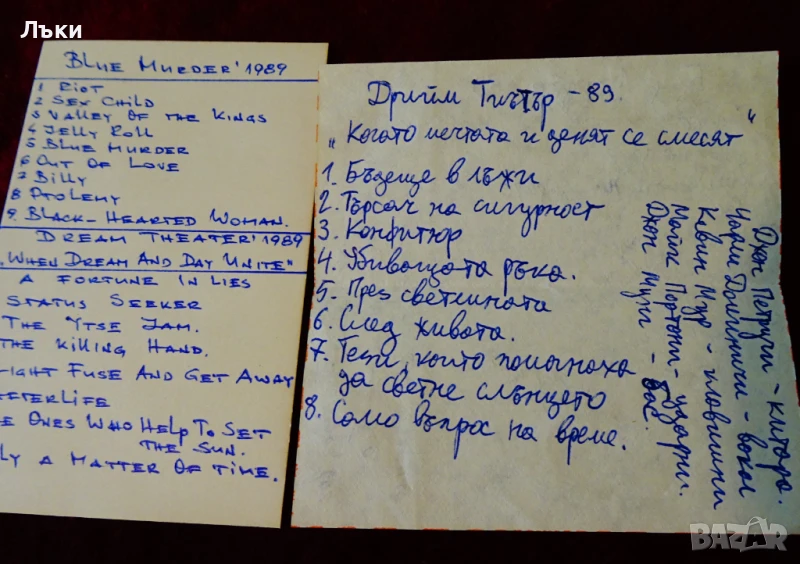 Лъки
BLUE MURDER'1989
1 RIOT
2 SEX CHILD
3 VALLEY OF THE KINGS
4 JELLY ROLL
5 BLUE MURDER
6 OUT OF LOVE
7 BILLY
8 PTOLEMY
9. BLACK-HEARTED WOMAN.
DREAM THEATER'1989
„WHEN DREAM AND DAY UNITE"
A FORTUNE IN LIES
STATUS SEEKER
THE YTSE JAM.
THE KILLING HAND.
IGHT FUSE AND GET AWAY
FTERLIFE
E ONES WHO HELP TO SET
THE SUN.
LY A MATTER OF TIME.
Дрийм Тиътър - 89.
„Когато мечтата и денят се смесят"
1. Бъдеще в лъжи
2. Търсач на сигурност
3. Конфитюр
4. Убиващата ръка.
5. През светлината
6. След живота.
7. Тези, които помогнаха
да светне слънцето
8. Само въпрос на време.
Джон Петручи - китара.
Чарли Доминичи - вокал
Кевин Мур - клавишни
Майк Портной - ударни.
Джон Мунг - бас.
BAZAR